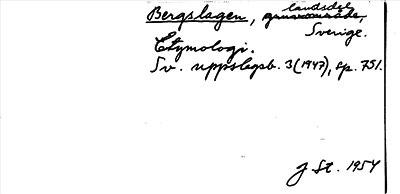 Bergslagen, landsdel,
Sverige.
Etymologi.
Sv. uppslagsb. 3 (1947), sp. 751.
J St. 1954